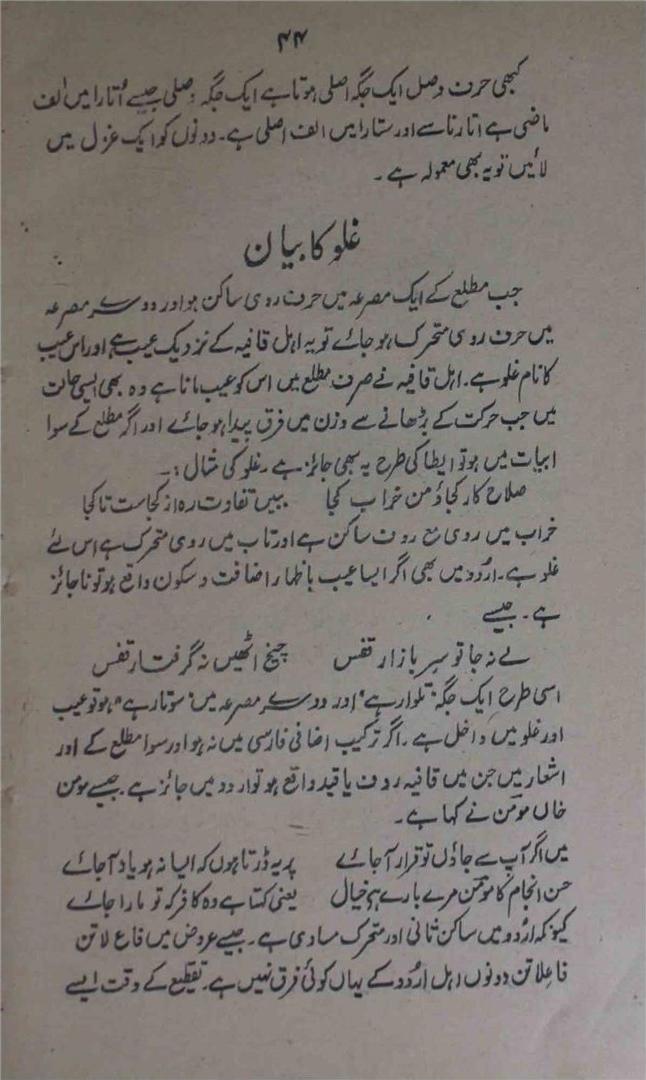 ۴۴
کبھی حرف وصل ایک جگہ اصلی ہوتا ہے ایک جگہ وصلی جیسے اُتارا میں الف
ماضی ہے اتارنا سے اور ستارا میں الف اصلی ہے۔ دونوں کو ایک غزل میں
لائیں تو یہ بھی معمولہ ہے۔
غلو کا بیان
جب مطلع کے ایک مصرعہ میں حرف روی ساکن ہو اور دوسرے مصرعہ
میں حرف روی متحرک ہو جائے تو یہ اہل قافیہ کے نزدیک عیب ہے اور اس عیب
کا نام غلو ہے۔ اہل قافیہ نے صرف مطلع میں اس کو عیب مانا ہے وہ بھی ایسی حالت
میں جب حرکت کے بڑھانے سے وزن میں فرق پیدا ہو جائے اور اگر مطلع کے سوا
ابیات میں ہو تو ایطا کی طرح یہ بھی جائز ہے۔ غلو کی مثال :۔
صلاح کار کجا و من خراب کجا ببیں تفاوت رہ از کجاست تا کجا
خراب میں روی مع ردف ساکن ہے اور تاب میں روی متحرک ہے اس لئے
غلو ہے۔ اردو میں بھی اگر ایسا عیب باظہار اضافت و سکون واقع ہو تو ناجائز
ہے۔ جیسے
لے نہ جا تو سر بازار قفس چیخ اٹھیں نہ گرفتار قفس
اسی طرح ایک جگہ "تلوار ہے" اور دوسرے مصرعہ میں "سوتا رہے" ہو تو عیب
اور غلو میں داخل ہے۔ اگر ترکیب اضافی فارسی میں نہ ہو اور سوا مطلع کے اور
اشعار میں جن میں قافیہ ردف یا قید واقع ہو تو اردو میں جائز ہے جیسے مومن
خاں مومن نے کہا ہے۔
میں اگر آپ سے جاؤں تو قرار آ جائے پر یہ ڈرتا ہوں کہ ایسا نہ ہو یار آ جائے
حسن انجام کا مومن مرے بارے ہے خیال یعنی کہتا ہے وہ کافر کہ تو مارا جائے
کیونکہ اردو میں ساکن ثانی اور متحرک مساوی ہے۔ جیسے عروض میں فاع لاتن
فاعلاتن دونوں اہل اردو کے یہاں کوئی فرق نہیں ہے۔ تقطیع کے وقت ایسے